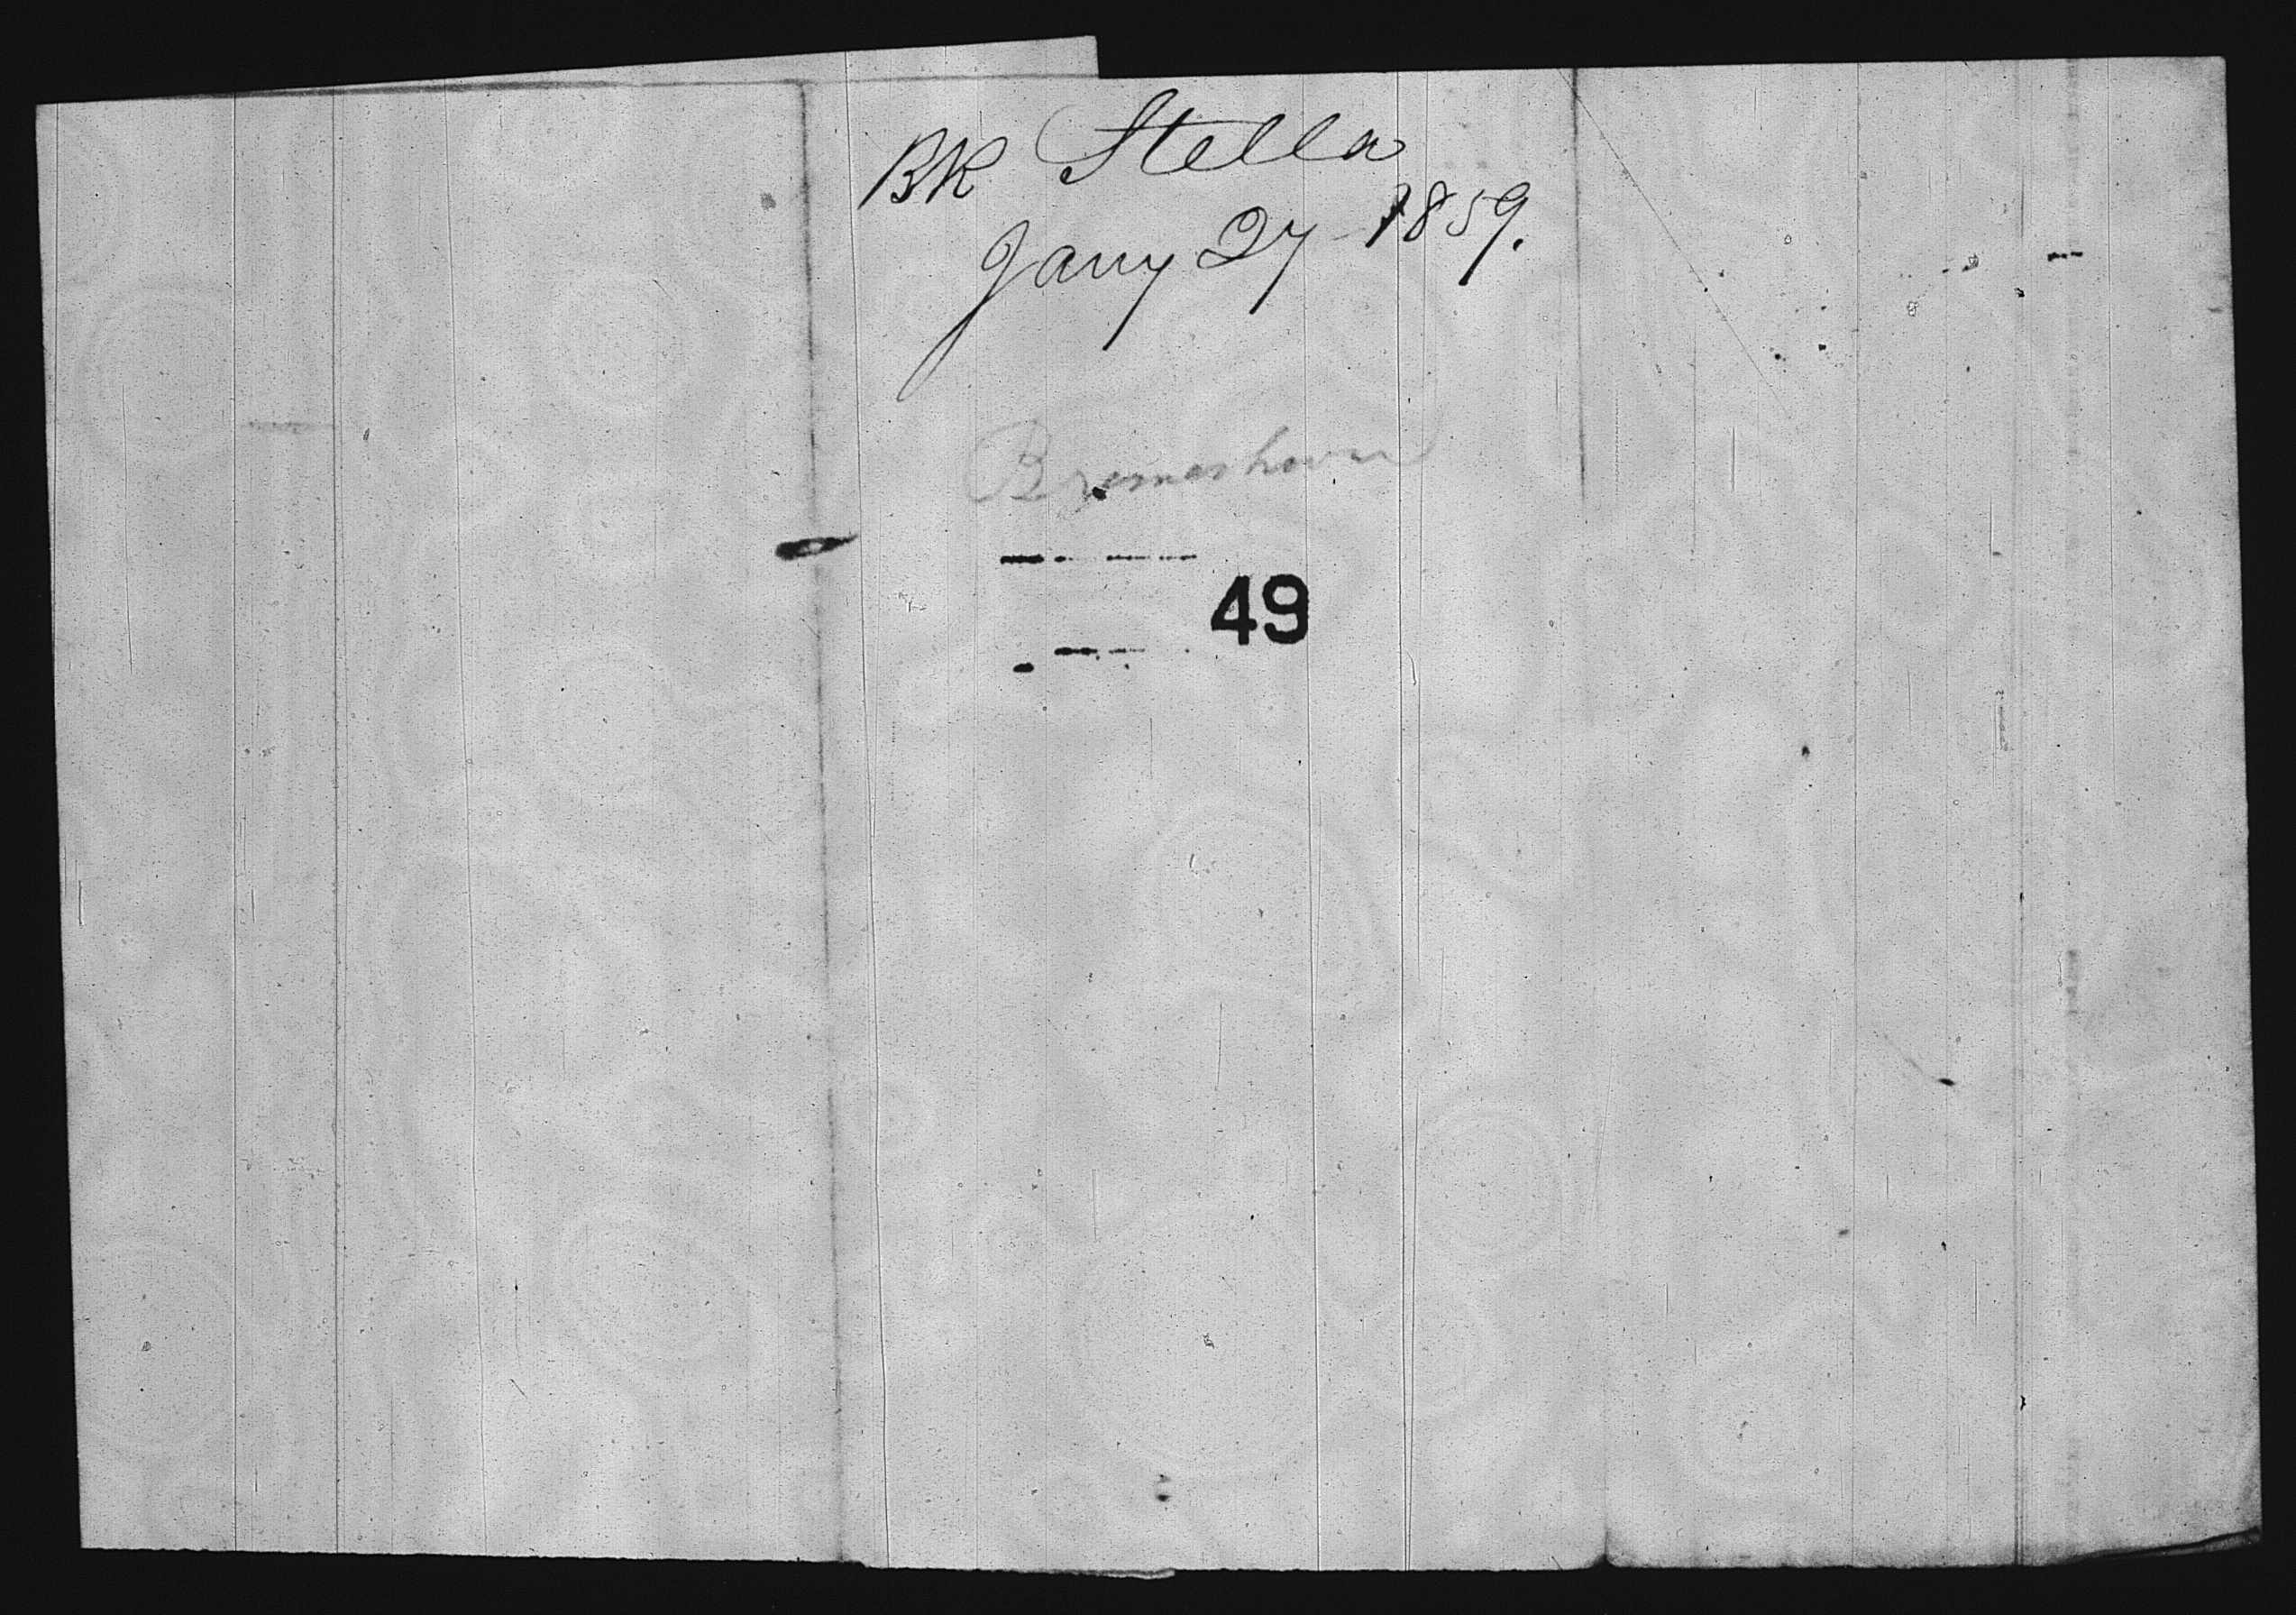 BK Stella
Jany 27 1859.
Bremerhaven
49